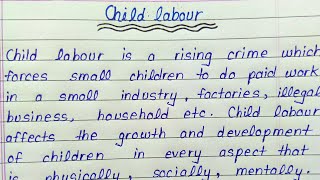 Child labour
Child labour is a rising crime which
forces small children to do paid work
in a small industry, factories, illegal
business, household etc. Child labour
affects the growth and development
of children in every aspect that
is physically, socially, mentally.